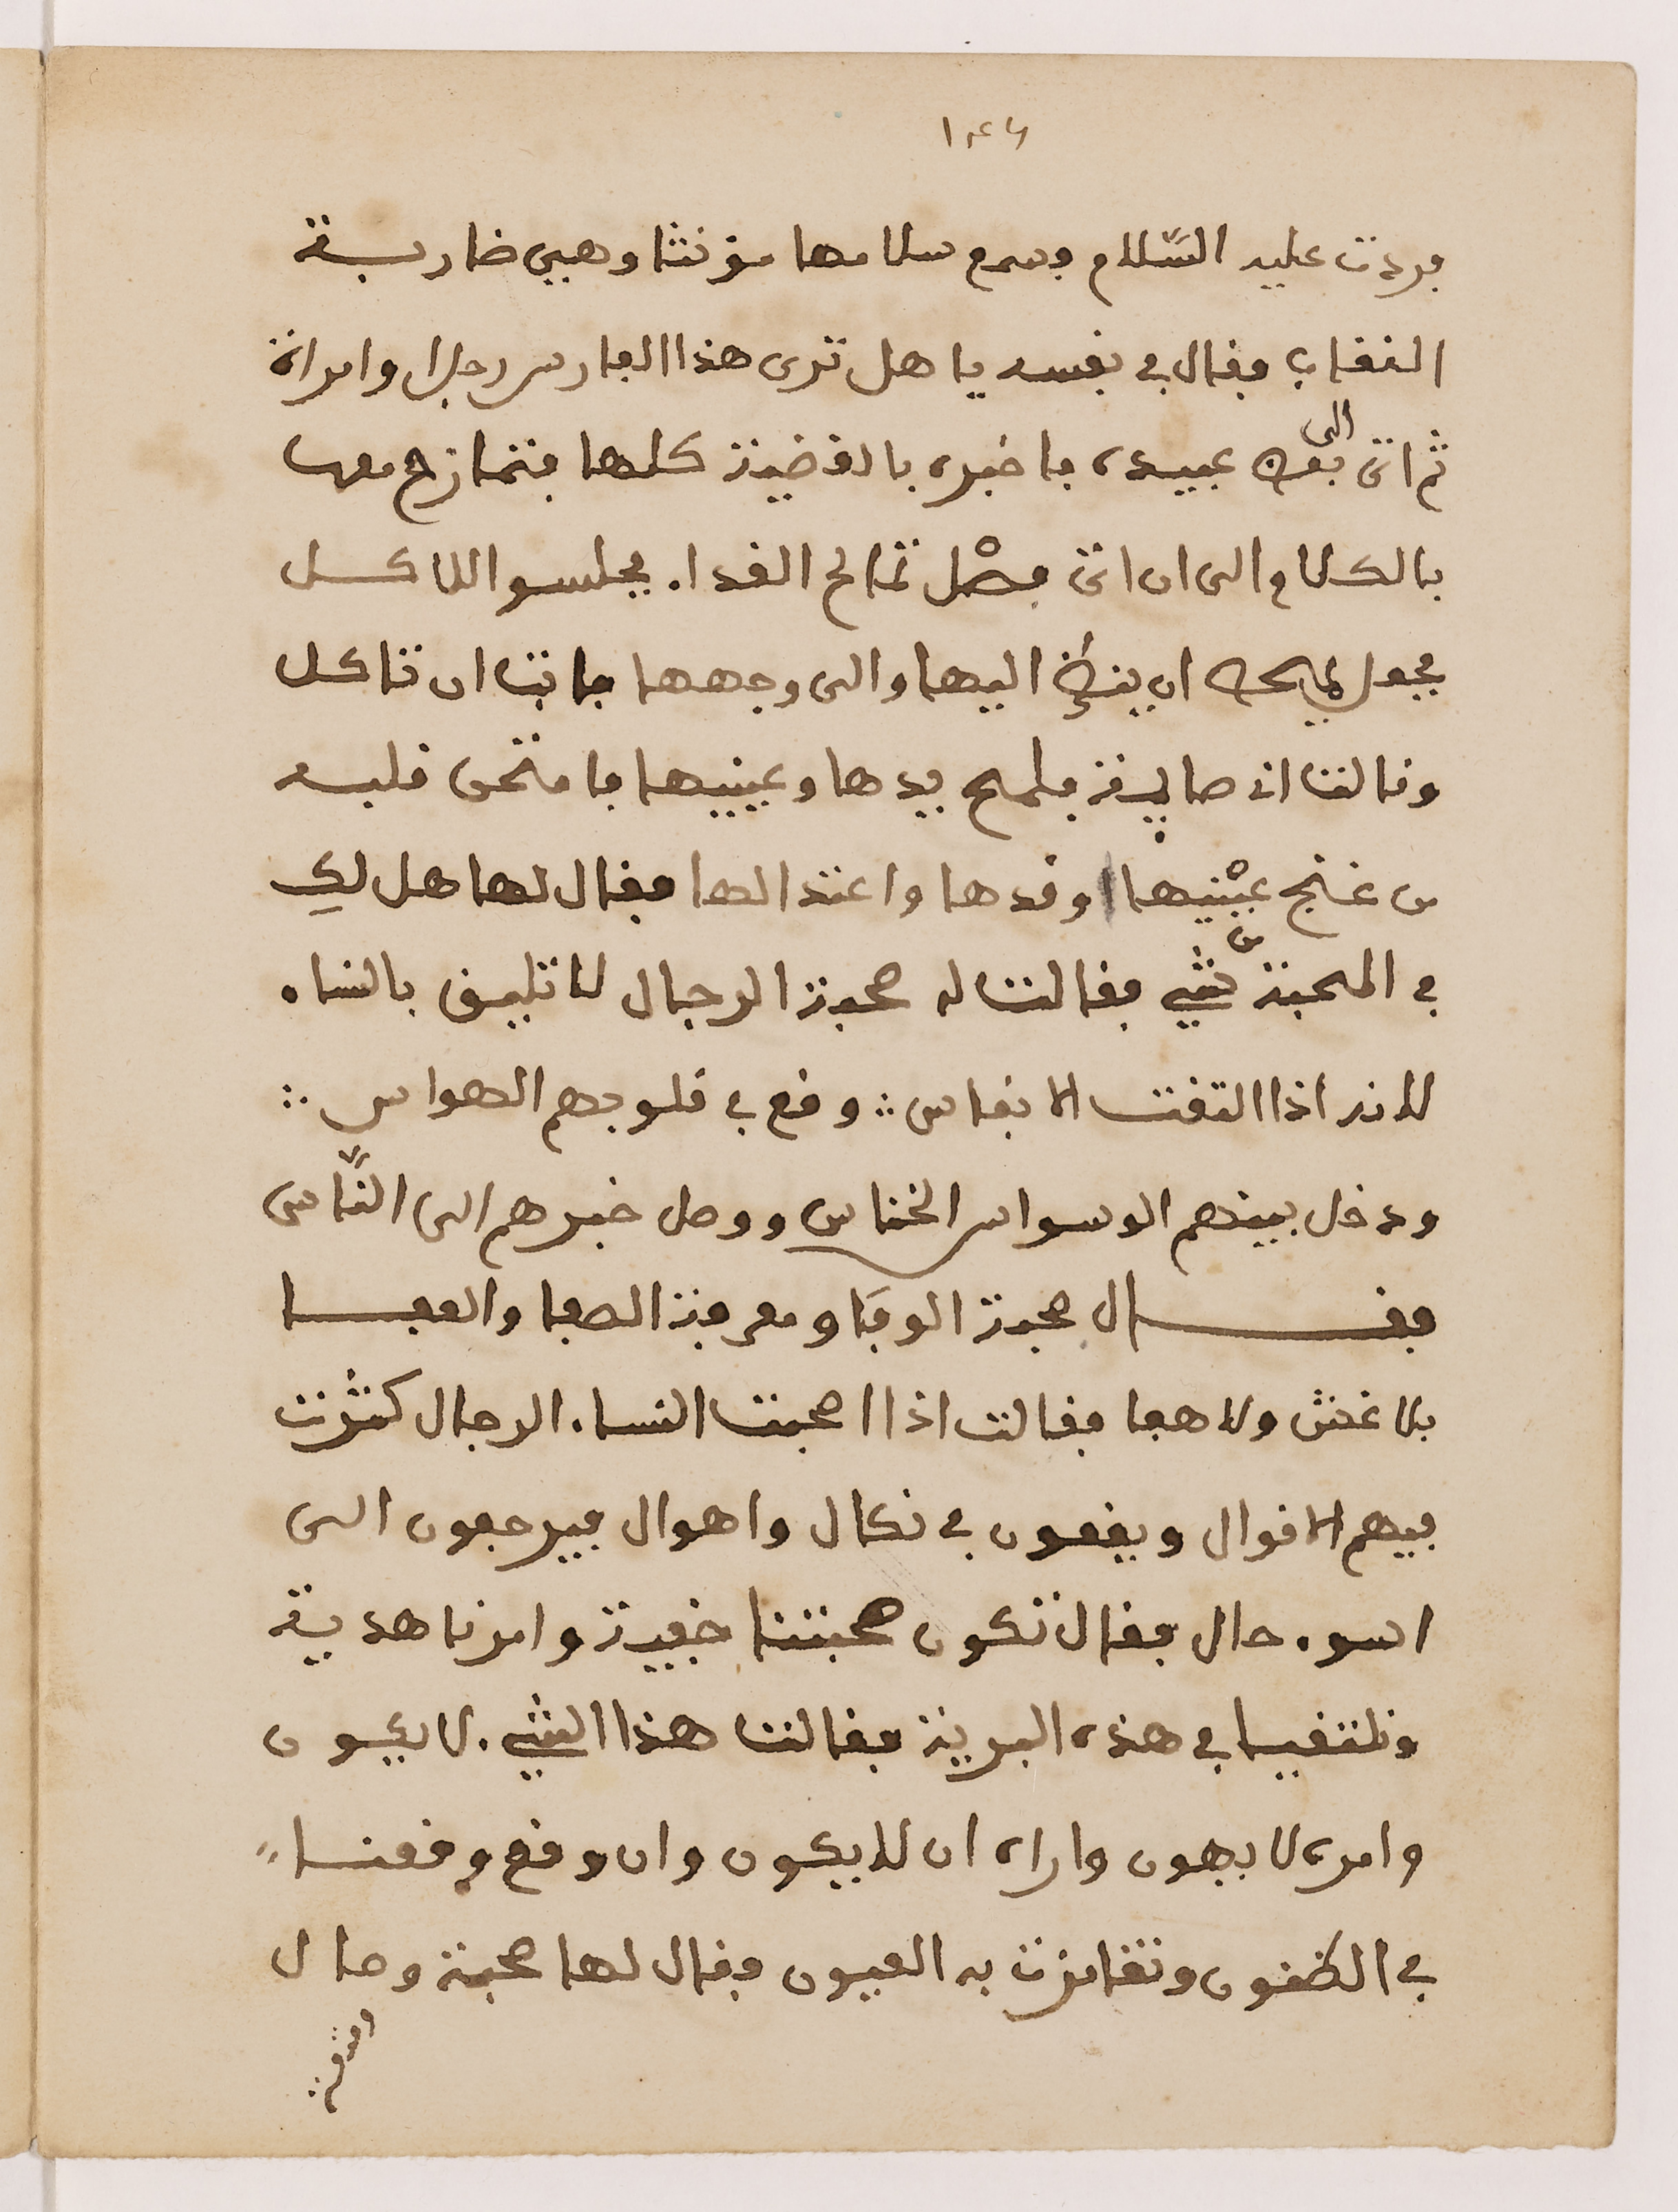 ١٤٦
فردت عليه السّلام فسمع سلامها مؤنثا وهيي ضاربة
النقاب فقال في نفسه يا هل ترى هذا الفارس رجلا وامراة
ثم اتى الى بعض عبيده فاخبره بالقضية كلها فتمازح معها
بالكلام الى ان اتى فصل تمالح الغدا. فجلسوا للاكل
فجعل يمالحك ان ينظر اليها والى وجهها فابت ان تاكل
وقالت اني صايمة فلمح يدها وعينيها فامتحن قلبه
من غنج عينيها وقدها واعتدالها فقال لها هل لكِ
في المحبة من شي فقالت له محبة الرجال لا تليق بالنساء
لانه اذا التفت الانفاس ∴ وقع في قلوبهم الهواس ∴
ودخل بينهم الوسواس الخناس ووصل خبرهم الى النّاس
فقال محبة الوفا ومعرفة الصفا والعفا
بلا غش ولا هفا فقالت اذا احبت النساء. الرجال كثرت
فيهم الاقوال ويقعون في نكال واهوال فيرجعون الى
اسوء حال فقال تكون محبتنا خفية وامرنا هدية
ونلتقيا في هذه البرية فقالت هذا الشي. لا يكون
وامره لا يهون واراه ان لا يكون وان وقع وقعنا
في الظنون وتغامزت به العيون فقال لها محبة وحال
وفرقة